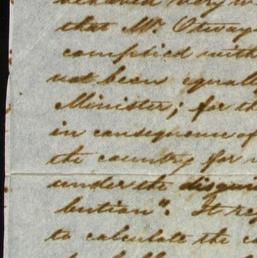 behaved very w
that Mr. Otway
complied with
not been equally
Minister; for th
in consequence of
the country for
under the disgui
bution". It re
to calculate the c